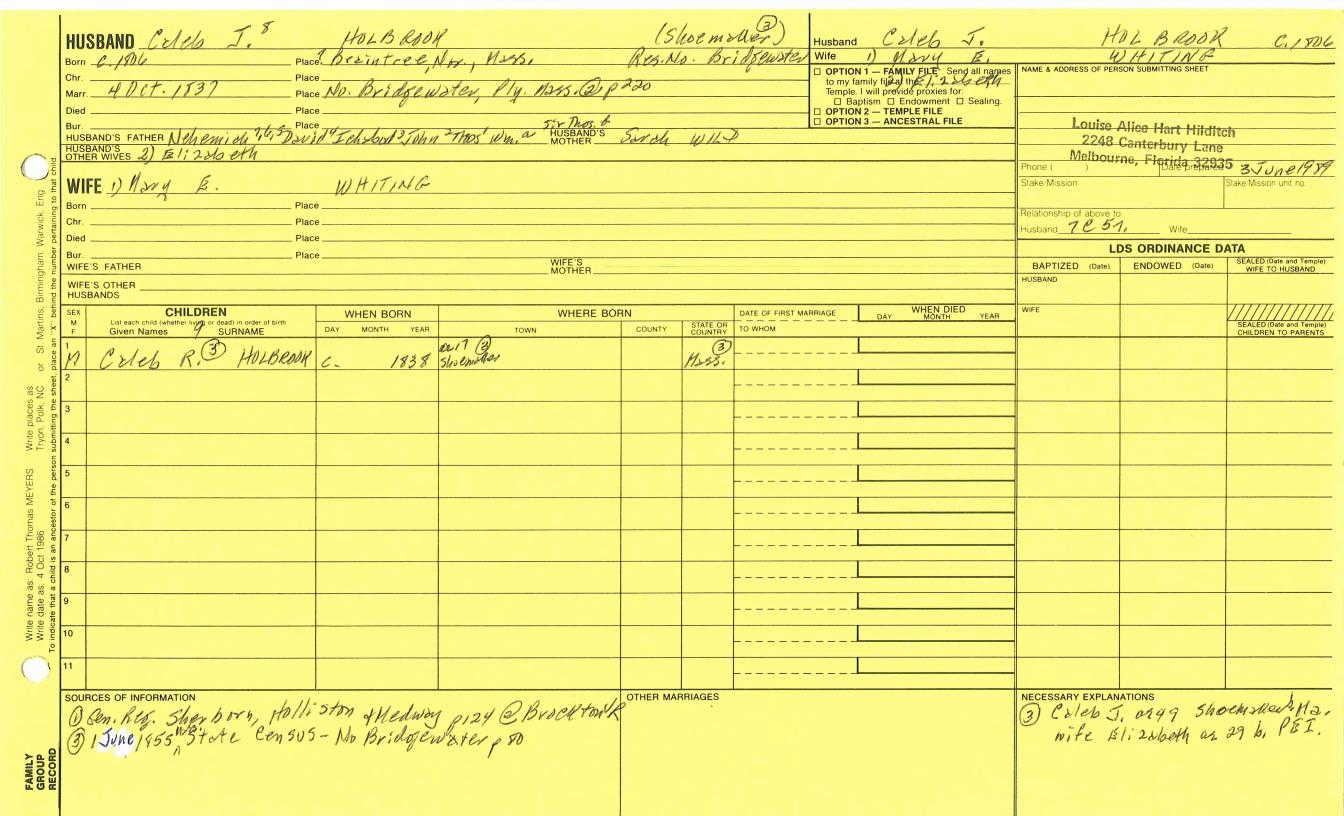 HUSBAND Caleb J.⁸ HOLBROOK (Shoemaker) ③
Born c.1806 Place ? Braintree, Nor., Mass. Res. No. Bridgewater
Chr. Place
Marr. 4 Oct. 1837 Place No. Bridgewater, Ply. Mass. ② p220
Died Place
Bur. Place
HUSBAND'S FATHER Nehemiah 7,6,5 David 4 Ichabod 3 John 2 Thos 1 Wm. a Sir Thos. b HUSBAND'S MOTHER Sarah WILD
HUSBAND'S OTHER WIVES 2) Elizabeth
WIFE 1) Mary E. WHITING
Born Place
Chr. Place
Died Place
Bur. Place
WIFE'S FATHER WIFE'S MOTHER
WIFE'S OTHER HUSBANDS
Husband Caleb J. HOLBROOK C.1806
Wife 1) Mary E. WHITING
2) Elizabeth
☐ OPTION 1 — FAMILY FILE Send all names
to my family file at the
Temple. I will provide proxies for:
☐ Baptism ☐ Endowment ☐ Sealing.
☐ OPTION 2 — TEMPLE FILE
☐ OPTION 3 — ANCESTRAL FILE
NAME & ADDRESS OF PERSON SUBMITTING SHEET
Louise Alice Hart Hilditch
2248 Canterbury Lane
Melbourne, Florida 32935
Phone ( ) Date prepared 3 June 1989
Stake/Mission Stake/Mission unit no.
Relationship of above to:
Husband 7C 5r. Wife
LDS ORDINANCE DATA
BAPTIZED (Date) ENDOWED (Date) SEALED (Date and Temple) WIFE TO HUSBAND
HUSBAND
WIFE
SEALED (Date and Temple) CHILDREN TO PARENTS
SEX M F
CHILDREN
List each child (whether living or dead) in order of birth
Given Names 9 SURNAME
WHEN BORN
DAY MONTH YEAR
WHERE BORN
TOWN COUNTY STATE OR COUNTRY
DATE OF FIRST MARRIAGE
TO WHOM
WHEN DIED
DAY MONTH YEAR
1 M Caleb R. ③ HOLBROOK c. 1838 ae 17 ③ Shoemaker Mass. ③
2
3
4
5
6
7
8
9
10
11
SOURCES OF INFORMATION
① Gen. Reg. Sherborn, Holliston & Medway p124 @ Brockton
③ 1 June 1855 State Census - No Bridgewater p 80
OTHER MARRIAGES
NECESSARY EXPLANATIONS
③ Caleb J. ae 49 Shoemaker b. Ma.
wife Elizabeth ae 29 b. PEI.
Write name as: Robert Thomas MEYERS Write places as: Tryon, Polk, NC or St. Martins, Birmingham, Warwick, Eng.
Write date as: 4 Oct 1986
To indicate that a child is an ancestor of the person submitting the sheet, place an "X" behind the number pertaining to that child.
FAMILY
GROUP
RECORD